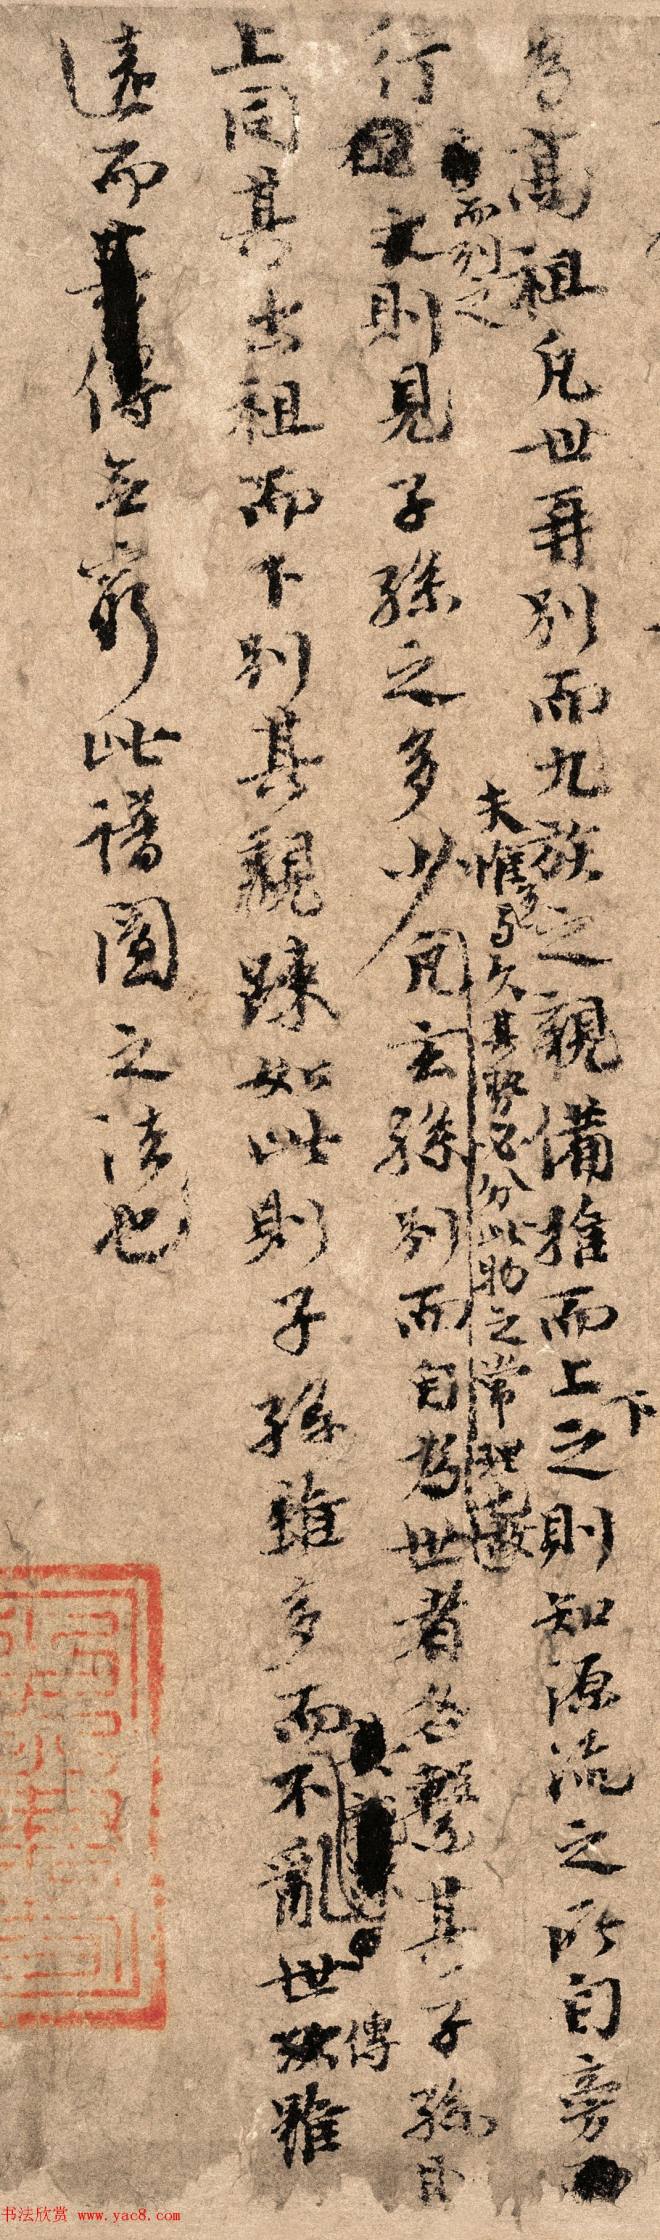 為高祖凡世再別而九族之親備推而上下之則知源流之所自旁
行而列之則見子孫之多少夫惟多與久其勢必分此物之常理凡玄孫別而自為世者各繫其子孫自
上同其出祖而下別其親踈如此則子孫雖多而不亂世傳雖
遠而傳無窮此譜圖之法也
书法欣赏 www.yac8.com